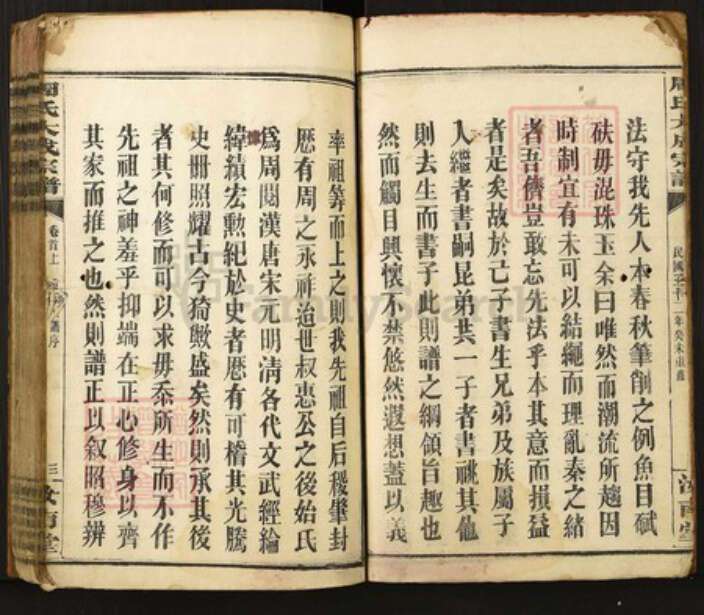 法守我先人本春秋筆削之例魚目碔
砆毋混珠玉余曰唯然而潮流所趨因
時制宜有未可以結繩而理亂秦之緒
者吾儕豈敢忘先法乎本其意而損益
者是矣故於己子書生兄弟及族屬子
入繼者書嗣昆弟共一子者書祧其他
則去生而書子此則譜之綱領旨趣也
然而觸目興懷不禁悠然遐想蓋以義
民國三十二年癸未重修
汝南堂
率祖算而上之則我先祖自后稷肇封
歷有周之永祚治世叔惠公之後始氏
爲周閱漢唐宋元明清各代文武經綸
緯績宏勲紀於史者歷有可稽其光騰
史册照耀古今猗歟盛矣然則承其後
者其何修而可以求毋忝所生而不作
先祖之神羞乎抑端在正心修身以齊
其家而推之也然則譜正以叙昭穆辨
周氏大成宗譜
卷首上
譜序
三
汝南堂
FamilySearch